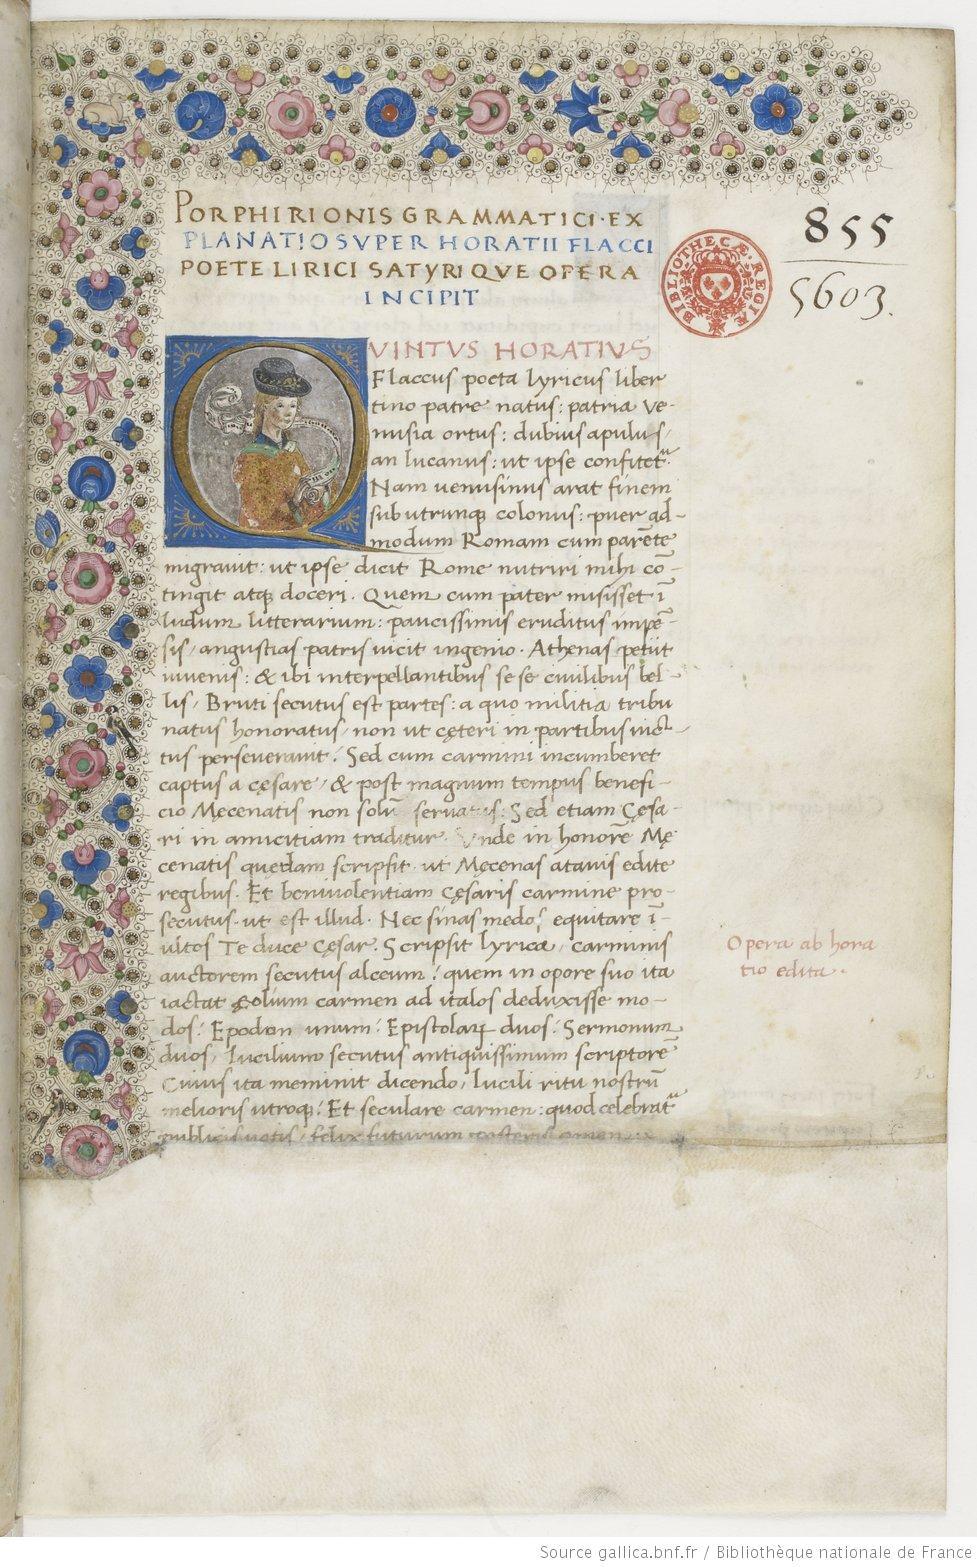 PORPHIRIONIS GRAMMATICI · EX
PLANATIO SVPER HORATII FLACCI
POETE LIRICI SATYRIQVE OPERA
INCIPIT
855
5603.
BIBLIOTHECÆ REGIÆ
QVINTVS HORATIVS
Flaccus poeta lyricus liber
tino patre natus: patria Ve-
nusia ortus: dubius apulus,
an lucanus: ut ipse confitet᷑
Nam uenusinus arat finem
sub utrunq; colonus: puer ad-
modum Romam cum parēte
migrauit: ut ipse dicit Rome nutriri mihi cō-
tingit atq; doceri. Quem cum pater misisset ī
ludum litterarium: paucissimis eruditus impē-
sis, angustias patris uicit ingenio. Athenas petiit
iuuenis: & ibi interpellantibus se se ciuilibus bel-
lis, Bruti secutus est partes: a quo militia tribu
natus honoratus, non ut cęteri in partibus uic-
tus perseuerauit: Sed cum carmini incumberet
captus a cęsare, & post magnum tempus benefi-
cio Mecenatis non solū seruatus: Sed etiam Cęsa-
ri in amicitiam traditur. Vnde in honorē Mę
cenatis quędam scripsit. ut Męcenas atauis edite
regibus. Et beniuolentiam Cęsaris carmine pro-
secutus. ut est illud. Nec sinas medos equitare ī-
ultos Te duce Cęsar. Scripsit lyrica, carminis
auctorem secutus alceum: quem in opore suo ita
iactat ęolium carmen ad italos deduxisse mo-
dos: Epodon unum: Epistolaꝝ duos: Sermonum
duos, lucilium secutus antiquissimum scriptorē
Cuius ita meminit dicendo, lucili ritu nostrū
melioris utroq;: Et seculare carmen: quod celebrat᷑
publicis uotis, felix futurum
Opera ab hora
tio edita.
Source gallica.bnf.fr / Bibliothèque nationale de France